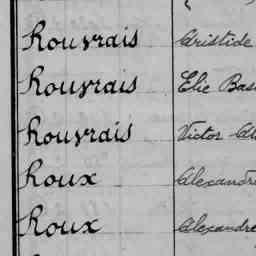 Rouvrais Aristide
Rouvrais Elie
Rouvrais Victor
Roux
Roux Alexandre